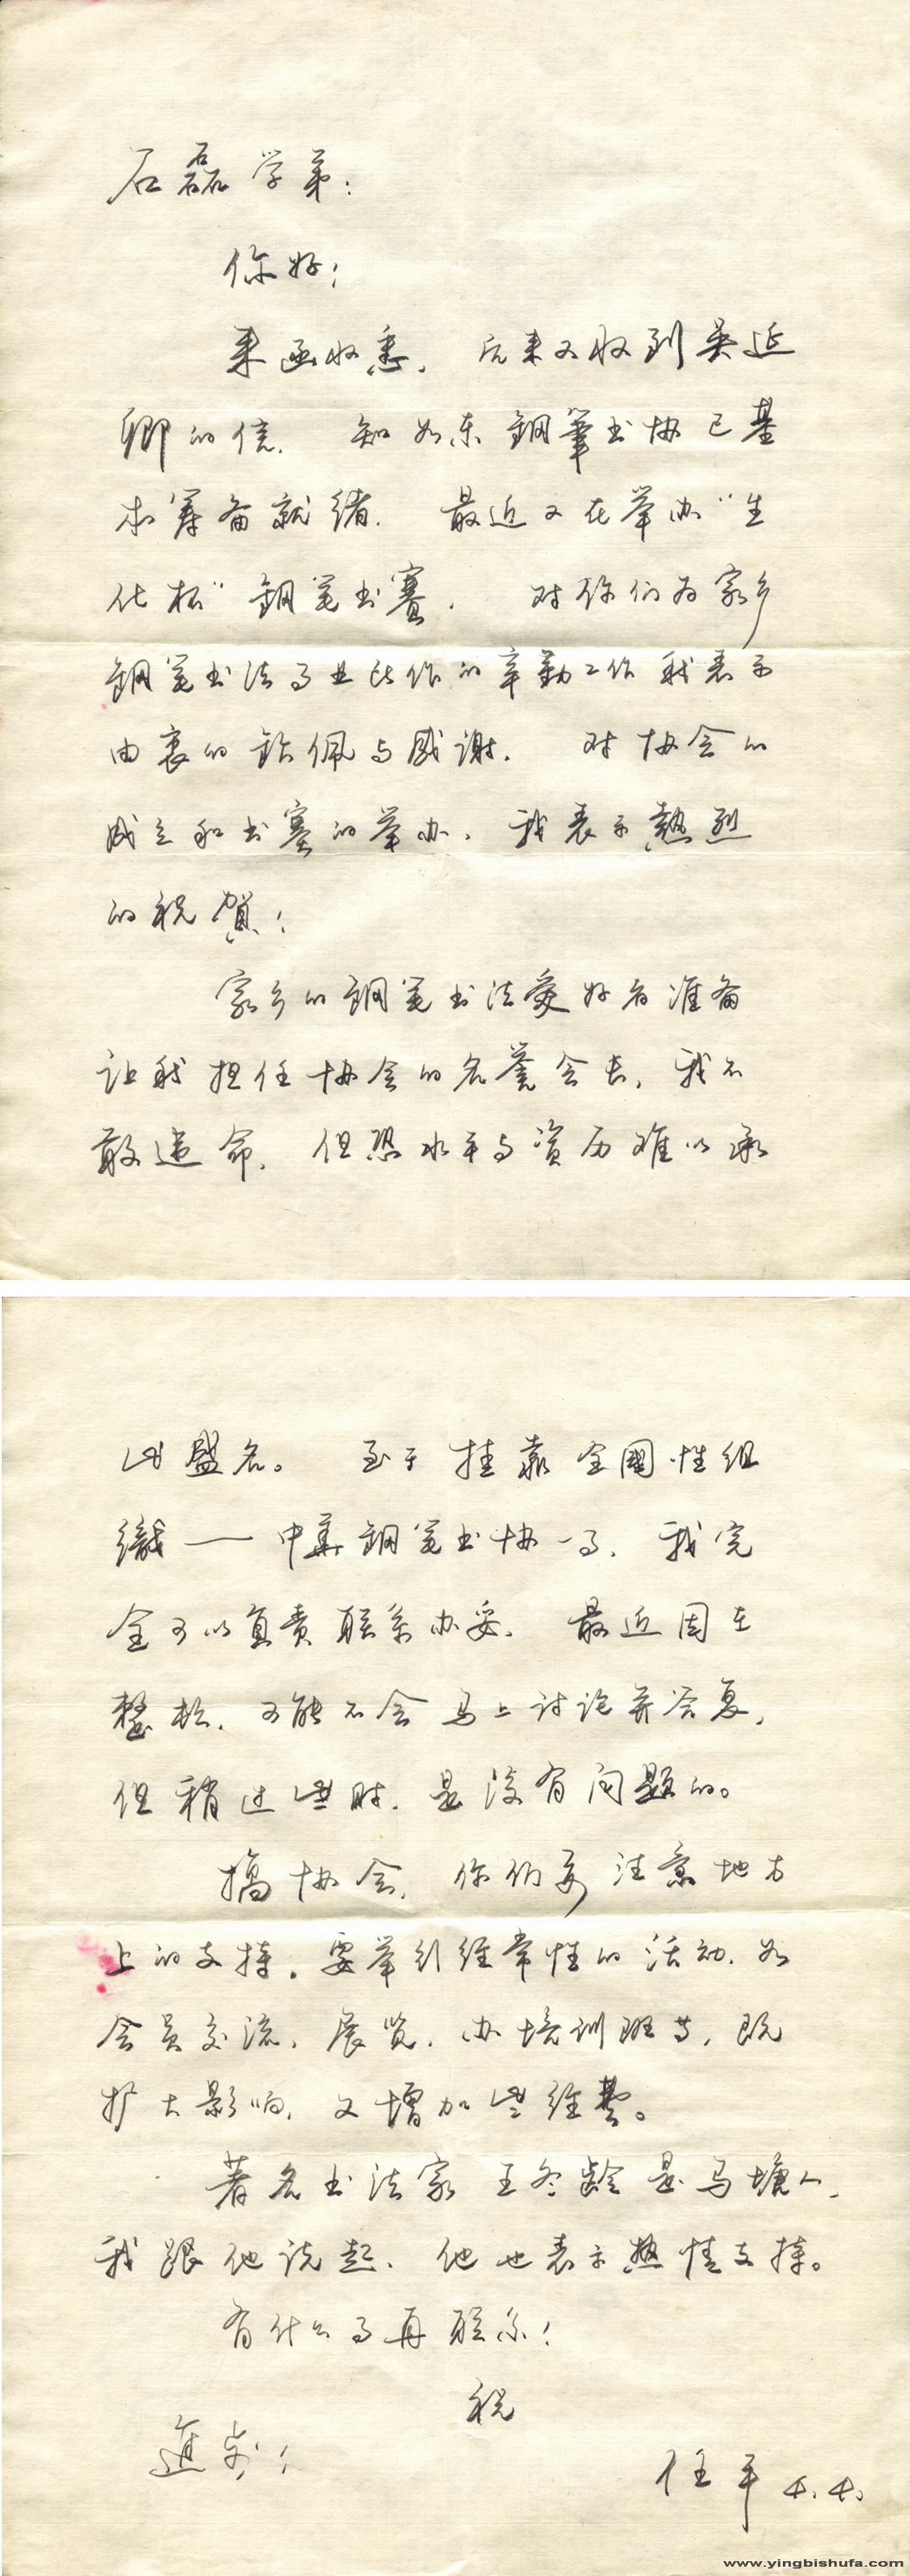 石磊学弟：
你好！
来函收悉，后来又收到吴延
卿的信，知如东鋼筆书协已基
本筹备就绪，最近又在举办“生
化杯”鋼笔书赛，对你们为家乡
鋼笔书法事业所作的辛勤工作我表示
由衷的钦佩与感谢，对协会的
成立和书赛的举办，我表示熱烈
的祝賀！
家乡的鋼笔书法爱好者准备
让我担任协会的名誉会长，我不
敢违命，但恐水平与资历难以承
此盛名。至于挂靠全國性组
織——中華鋼笔书协一事，我完
全可以负责联系办妥，最近因在
整机，可能不会马上讨论并答复，
但稍过些时，是没有问题的。
搞协会，你们要注意地方
上的支持，要举行经常性的活动，如
会员交流，展览，办培训班等，既
扩大影响，又增加些经费。
著名书法家王冬龄是马塘人，
我跟他说起，他也表示热情支持。
有什么事再联系！
祝
進步！
任平 4.4.
www.yingbishufa.com